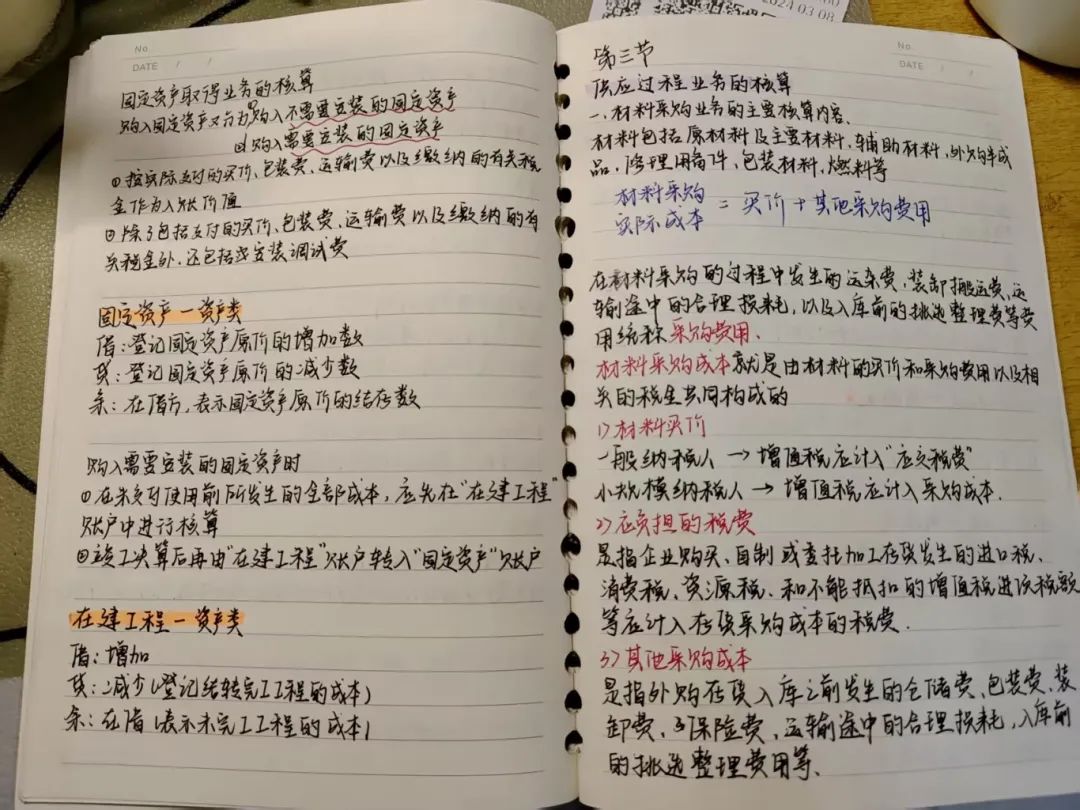 No.
DATE / /
固定资产取得业务的核算
购入固定资产又分为①购入不需要安装的固定资产
②购入需要安装的固定资产
①按实际支付的买价、包装费、运输费以及缴纳的有关税
金作为入账价值
②除了包括支付的买价、包装费、运输费以及缴纳的有
关税金外，还包括安装调试费
固定资产—资产类
借：登记固定资产原价的增加数
贷：登记固定资产原价的减少数
余：在借方，表示固定资产原价的结存数
购入需要安装的固定资产时
①在未交付使用前所发生的全部成本，应先在"在建工程"
账户中进行核算
②竣工决算后再由"在建工程"账户转入"固定资产"账户
在建工程—资产类
借：增加
贷：减少（登记结转完工工程的成本）
余：在借（表示未完工工程的成本）
2024 03 08
No.
DATE / /
第三节
供应过程业务的核算
一.材料采购业务的主要核算内容.
材料包括原材料及主要材料，辅助材料，外购半成
品，修理用备件、包装材料，燃料等
材料采购
实际成本 = 买价 + 其他采购费用
在材料采购的过程中发生的运杂费，装卸搬运费，运
输途中的合理损耗，以及入库前的挑选整理费等费
用统称采购费用.
材料采购成本就是由材料的买价和采购费用以及相
关的税金共同构成的
1）材料买价
一般纳税人 → 增值税应计入"应交税费"
小规模纳税人 → 增值税应计入采购成本.
2）应负担的税费
是指企业购买、自制或委托加工存货发生的进口税、
消费税、资源税、和不能抵扣的增值税进项税额
等应计入存货采购成本的税费.
3）其他采购成本
是指外购存货入库之前发生的仓储费、包装费、装
卸费、保险费、运输途中的合理损耗，入库前
的挑选整理费用等、